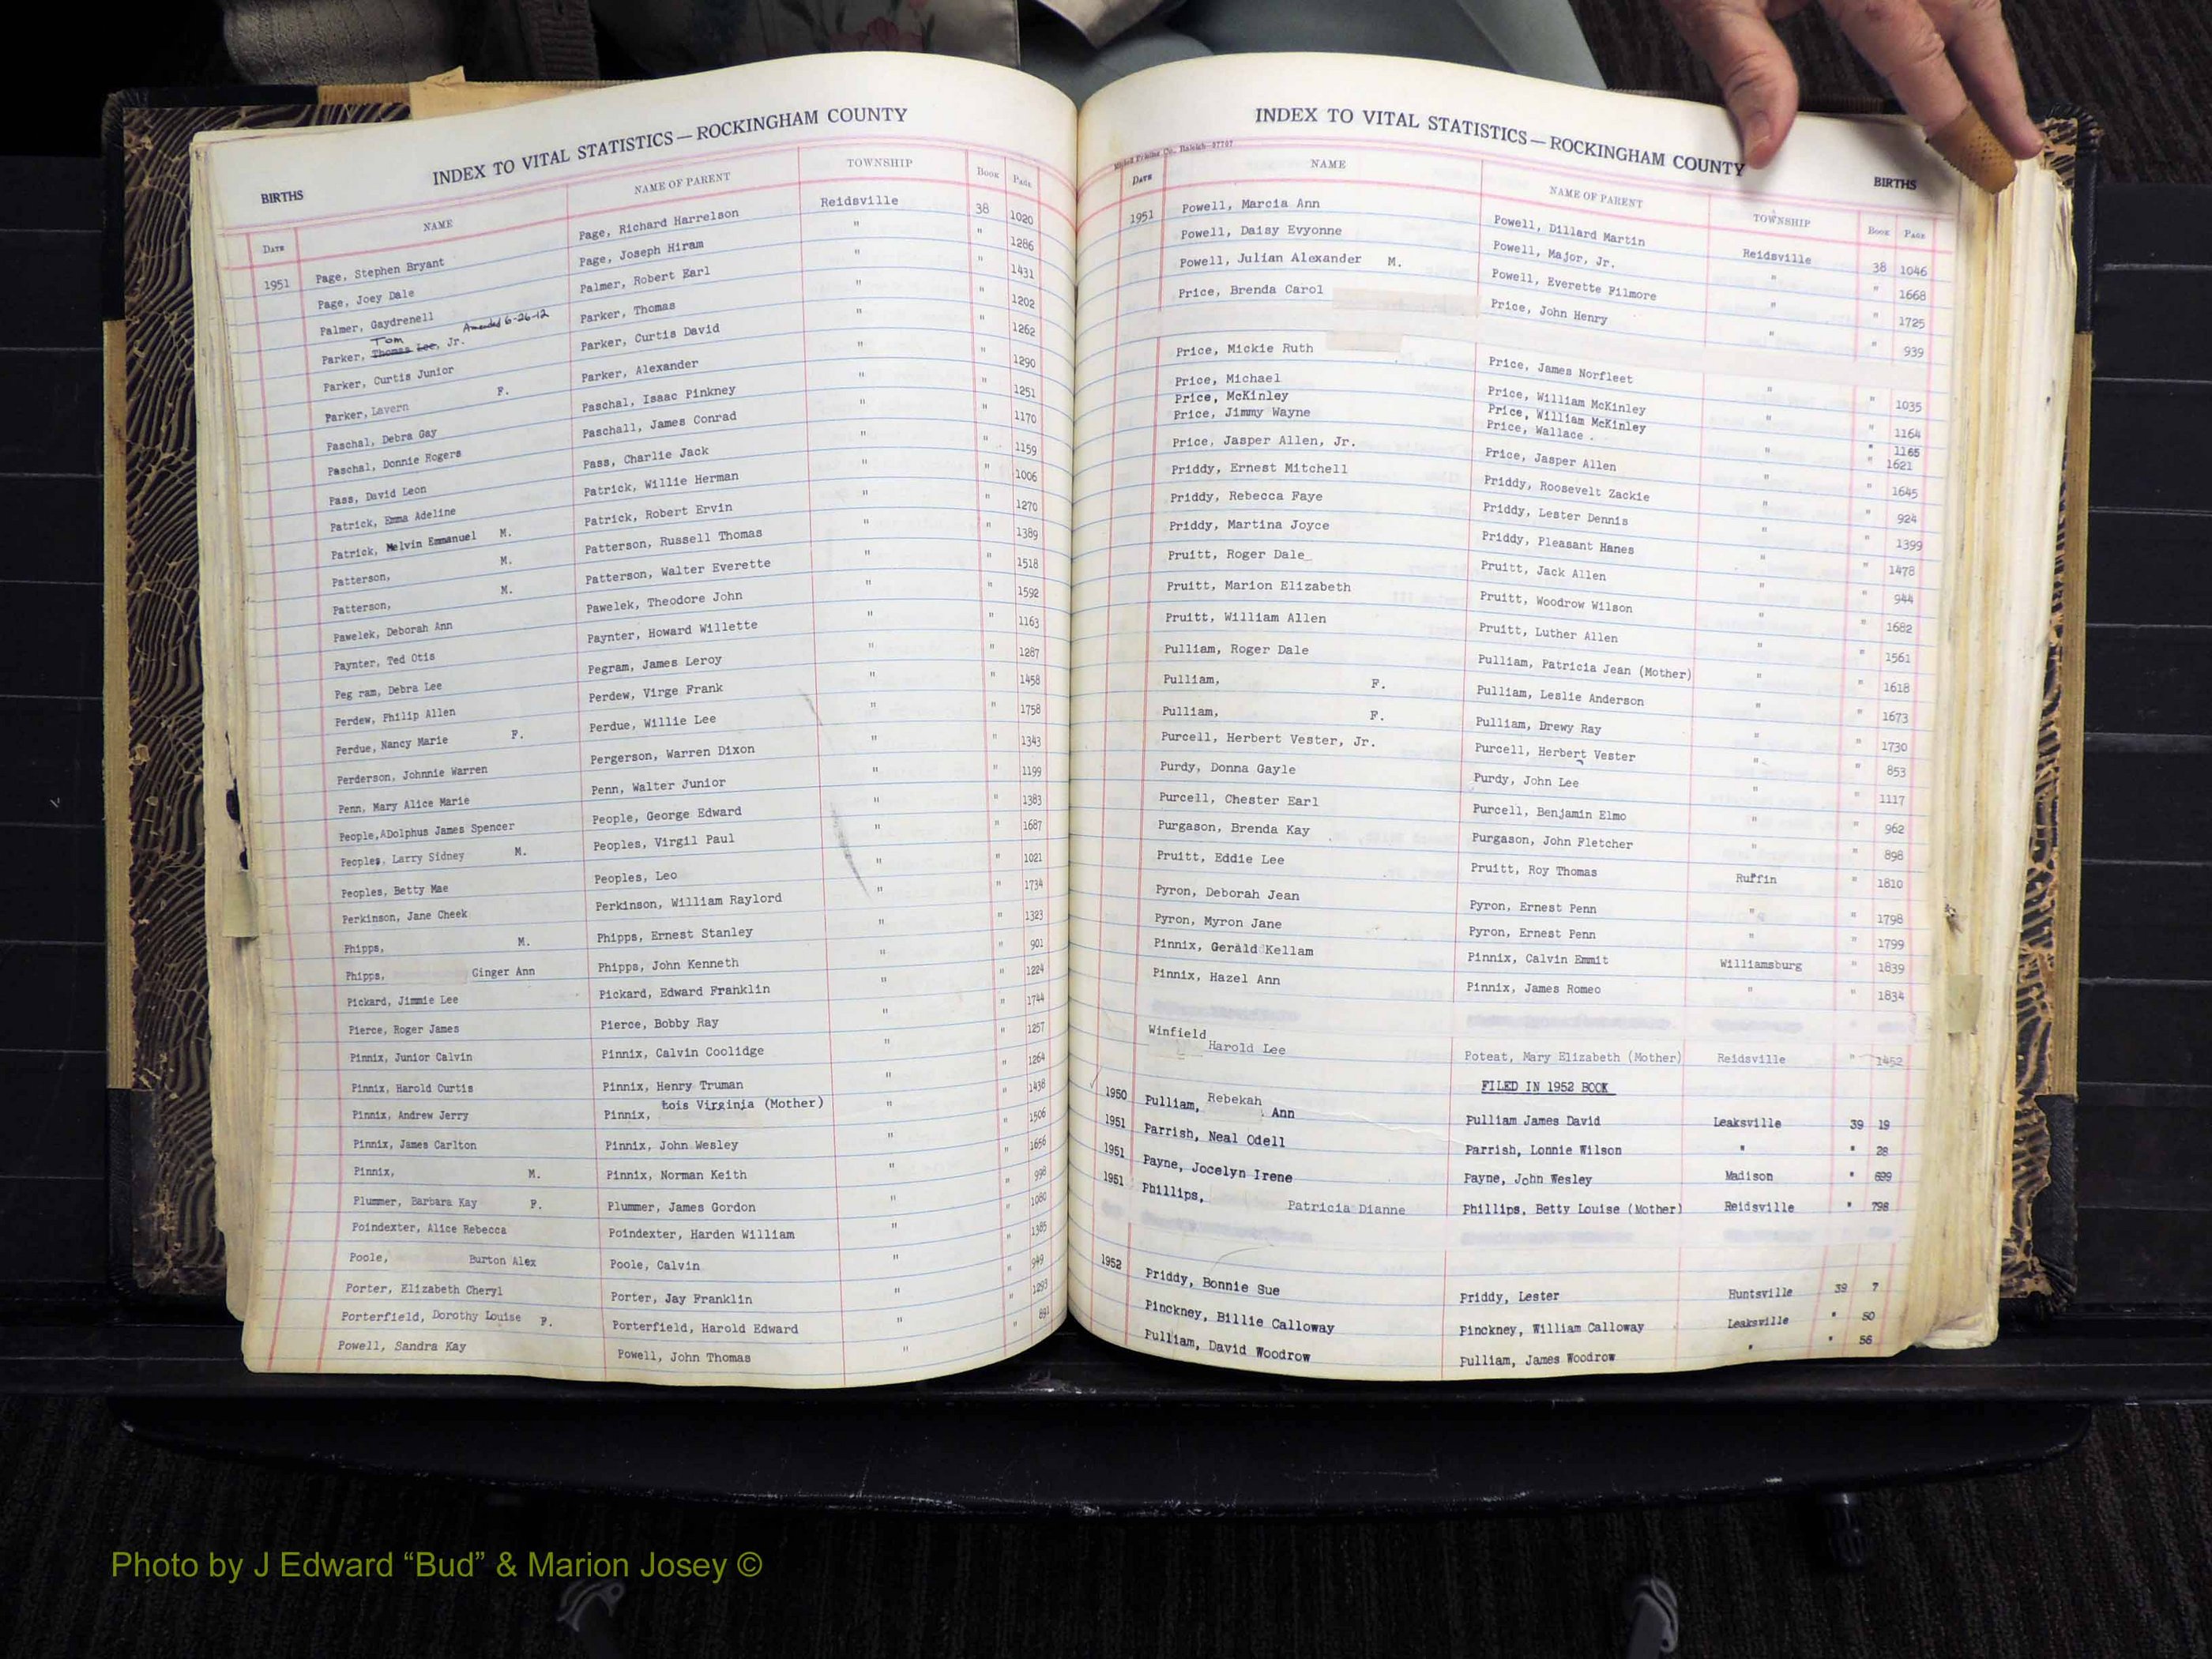 INDEX TO VITAL STATISTICS — ROCKINGHAM COUNTY
BIRTHS
DATE NAME NAME OF PARENT TOWNSHIP BOOK PAGE
1951 Page, Stephen Bryant Page, Richard Harrelson Reidsville 38 1020
Page, Joey Dale Page, Joseph Hiram " " 1286
Palmer, Gaydrenell Palmer, Robert Earl " " 1431
Tom Amended 6-26-12
Parker, Thomas Lee, Jr. Parker, Thomas " " 1202
Parker, Curtis Junior Parker, Curtis David " " 1262
Parker, Lavern F. Parker, Alexander " " 1290
Paschal, Debra Gay Paschal, Isaac Pinkney " " 1251
Paschal, Donnie Rogers Paschall, James Conrad " " 1170
Pass, David Leon Pass, Charlie Jack " " 1159
Patrick, Emma Adeline Patrick, Willie Herman " " 1006
Patrick, Melvin Emmanuel M. Patrick, Robert Ervin " " 1270
Patterson, M. Patterson, Russell Thomas " " 1389
Patterson, M. Patterson, Walter Everette " " 1518
Pawelek, Deborah Ann Pawelek, Theodore John " " 1592
Paynter, Ted Otis Paynter, Howard Willette " " 1163
Peg ram, Debra Lee Pegram, James Leroy " " 1287
Perdew, Philip Allen Perdew, Virge Frank " " 1458
Perdue, Nancy Marie F. Perdue, Willie Lee " " 1758
Perderson, Johnnie Warren Pergerson, Warren Dixon " " 1343
Penn, Mary Alice Marie Penn, Walter Junior " " 1199
People, ADolphus James Spencer People, George Edward " " 1383
Peoples, Larry Sidney M. Peoples, Virgil Paul " " 1687
Peoples, Betty Mae Peoples, Leo " " 1021
Perkinson, Jane Cheek Perkinson, William Raylord " " 1734
Phipps, M. Phipps, Ernest Stanley " " 1323
Phipps, Ginger Ann Phipps, John Kenneth " " 901
Pickard, Jimmie Lee Pickard, Edward Franklin " " 1224
Pierce, Roger James Pierce, Bobby Ray " " 1744
Pinnix, Junior Calvin Pinnix, Calvin Coolidge " " 1257
Pinnix, Harold Curtis Pinnix, Henry Truman " " 1264
Pinnix, Andrew Jerry Pinnix, Lois Virginia (Mother) " " 1438
Pinnix, James Carlton Pinnix, John Wesley " " 1506
Pinnix, M. Pinnix, Norman Keith " " 1656
Plummer, Barbara Kay F. Plummer, James Gordon " " 998
Poindexter, Alice Rebecca Poindexter, Harden William " " 1080
Poole, Burton Alex Poole, Calvin " " 1385
Porter, Elizabeth Cheryl Porter, Jay Franklin " " 949
Porterfield, Dorothy Louise F. Porterfield, Harold Edward " " 1293
Powell, Sandra Kay Powell, John Thomas " " 891
INDEX TO VITAL STATISTICS — ROCKINGHAM COUNTY
BIRTHS
DATE NAME NAME OF PARENT TOWNSHIP BOOK PAGE
1951 Powell, Marcia Ann Powell, Dillard Martin Reidsville 38 1046
Powell, Daisy Evyonne Powell, Major, Jr. " " 1668
Powell, Julian Alexander M. Powell, Everette Filmore " " 1725
Price, Brenda Carol Price, John Henry " " 939
Price, Mickie Ruth Price, James Norfleet " " 1035
Price, Michael Price, William McKinley " " 1164
Price, McKinley Price, William McKinley " 1165
Price, Jimmy Wayne Price, Wallace . " " 1621
Price, Jasper Allen, Jr. Price, Jasper Allen " " 1645
Priddy, Ernest Mitchell Priddy, Roosevelt Zackie " " 924
Priddy, Rebecca Faye Priddy, Lester Dennis " " 1399
Priddy, Martina Joyce Priddy, Pleasant Hanes " " 1478
Pruitt, Roger Dale Pruitt, Jack Allen " " 944
Pruitt, Marion Elizabeth Pruitt, Woodrow Wilson " " 1682
Pruitt, William Allen Pruitt, Luther Allen " " 1561
Pulliam, Roger Dale Pulliam, Patricia Jean (Mother) " " 1618
Pulliam, F. Pulliam, Leslie Anderson " " 1673
Pulliam, F. Pulliam, Drewy Ray " " 1730
Purcell, Herbert Vester, Jr. Purcell, Herbert Vester " " 853
Purdy, Donna Gayle Purdy, John Lee " " 1117
Purcell, Chester Earl Purcell, Benjamin Elmo " " 962
Purgason, Brenda Kay Purgason, John Fletcher " " 898
Pruitt, Eddie Lee Pruitt, Roy Thomas Ruffin " 1810
Pyron, Deborah Jean Pyron, Ernest Penn " " 1798
Pyron, Myron Jane Pyron, Ernest Penn " " 1799
Pinnix, Gerald Kellam Pinnix, Calvin Emmit Williamsburg " 1839
Pinnix, Hazel Ann Pinnix, James Romeo " " 1834
Winfield Harold Lee Poteat, Mary Elizabeth (Mother) Reidsville " 1452
FILED IN 1952 BOOK
1950 Pulliam, Rebekah Ann Pulliam James David Leaksville 39 19
1951 Parrish, Neal Odell Parrish, Lonnie Wilson " " 28
1951 Payne, Jocelyn Irene Payne, John Wesley Madison " 699
1951 Phillips, Patricia Dianne Phillips, Betty Louise (Mother) Reidsville " 798
1952 Priddy, Bonnie Sue Priddy, Lester Huntsville 39 7
Pinckney, Billie Calloway Pinckney, William Calloway Leaksville " 50
Pulliam, David Woodrow Pulliam, James Woodrow " " 56
Photo by J Edward “Bud” & Marion Josey ©